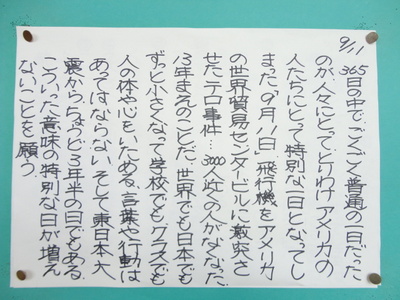 9/11
365日の中で、ごくごく普通の一日だった
のが、人々にとってとりわけアメリカの
人たちにとって特別な一日となってし
まった「9月11日」飛行機をアメリカ
の世界貿易センタービルに激突さ
せたテロ事件…3000人近くの人がなくなった
13年まえのことだ、世界でも日本でも
ずっと小さくなって学校でもクラスでも
人の体や心をいためる、言葉や行動は
あってはならない そして東日本大
震からちょうど3年半の日でもある
こういった意味の特別な日が増え
ないことを願う